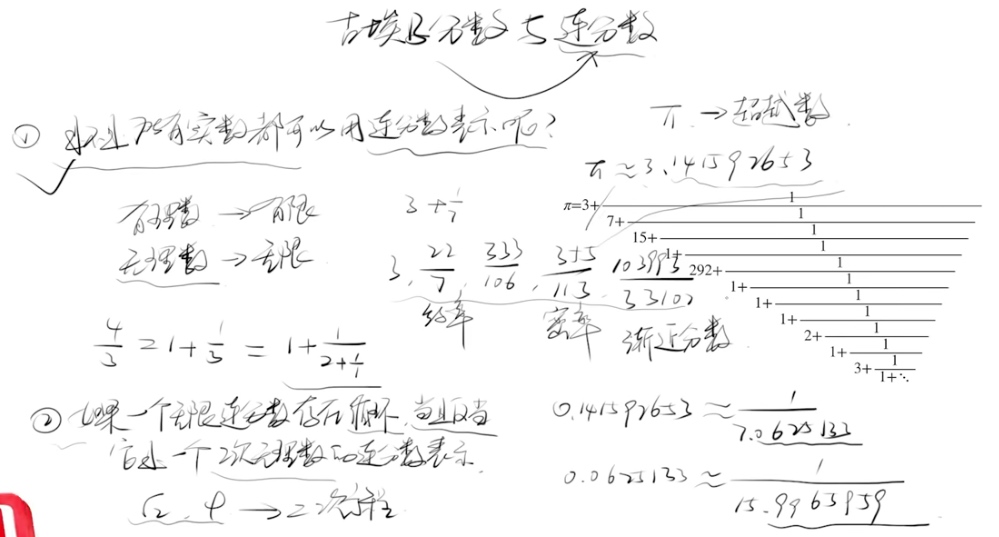 古埃及分数与连分数
① 是不是所有实数都可以用连分数表示呢?
有理数 → 有限
无理数 → 无限
4/3 = 1 + 1/3 = 1 + 1/(2 + 1/1)
② 如果一个无限连分数存在循环,当且仅当
它是一个二次无理数的连分数表示.
√2, φ → 二次方程
3 + 1/7
3, 22/7, 333/106, 355/113, 103993/33102
约率 密率 渐近分数
π → 超越数
π ≈ 3.141592653
π=3+ 1
7+ 1
15+ 1
1+ 1
292+ 1
1+ 1
1+ 1
1+ 1
2+ 1
1+ 1
3+ 1
1+⋱
0.141592653 ≈ 1/7.0625133
0.0625133 ≈ 1/15.9965959